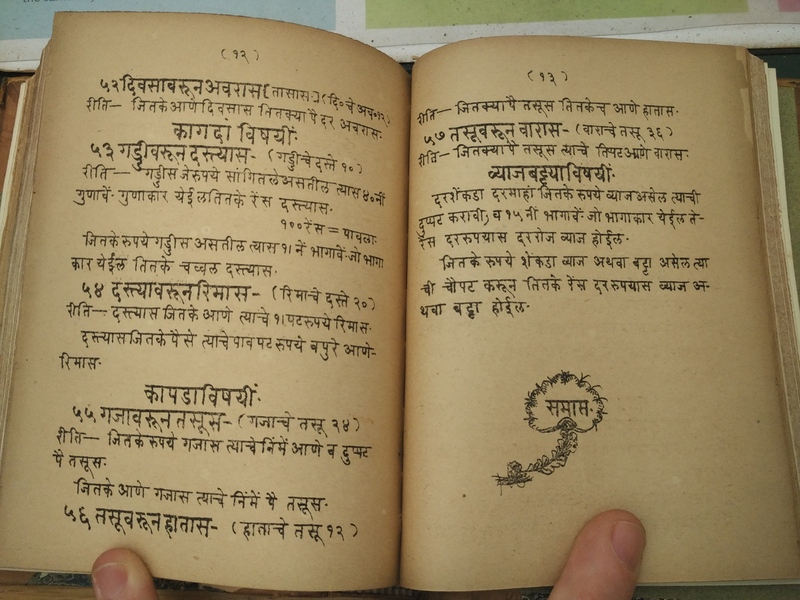 (१२)
५२ दिवसावरून अवरास [तासास.] (दि० चे अव० १२)
रीति— जितके आणे दिवसास तितक्या पै दर अवरास.
कागदां विषयीं.
५३ गड्डीवरून दस्त्यास- (गड्डीचे दस्ते १०)
रीति— गड्डीस जे रुपये सांगितले असतील त्यास ४० नीं
गुणावें. गुणाकार येईल तितके रेंस दस्त्यास.
१०० रेंस = पावला.
जितके रुपये गड्डीस असतील त्यास १। नें भागावें. जो भागा
कार येईल तितके चव्वल दस्त्यास.
५४ दस्त्यावरून रिमास- (रिमाचे दस्ते २०)
रीति— दस्त्यास जितके आणे त्याचे १। पट रुपये रिमास.
दस्त्यास जितके पैसे त्याचे पाव पट रुपये व पुरे आणे-
रिमास.
कापडाविषयीं.
५५ गजावरून तसूस- (गजाचे तसू २४)
रीति— जितके रुपये गजास त्याचे निंमें आणे व दुप्पट
पै तसूस.
जितके आणे गजास त्याचे निंमें पै तसूस.
५६ तसूवरून हातास- (हाताचे तसू १२)
(१३)
रीति— जितक्या पै तसूस तितकेच आणे हातास.
५७ तसूवरून वारास- (वाराचे तसू ३६)
रीति— जितक्या पै तसूस त्याचे तिपट आणे वारास.
व्याजबट्ट्याविषयीं.
दरशेंकडा दरमाहां जितके रुपये व्याज असेल त्याची
दुप्पट करावी, व १५ नीं भागावें. जो भागाकार येईल ते-
रेंस दर रुपयास दररोज व्याज होईल.
जितके रुपये शेंकडा व्याज अथवा बट्टा असेल त्या
ची चौपट करून तितके रेंस दर रुपयास व्याज अ-
थवा बट्टा होईल.
समाप्त.